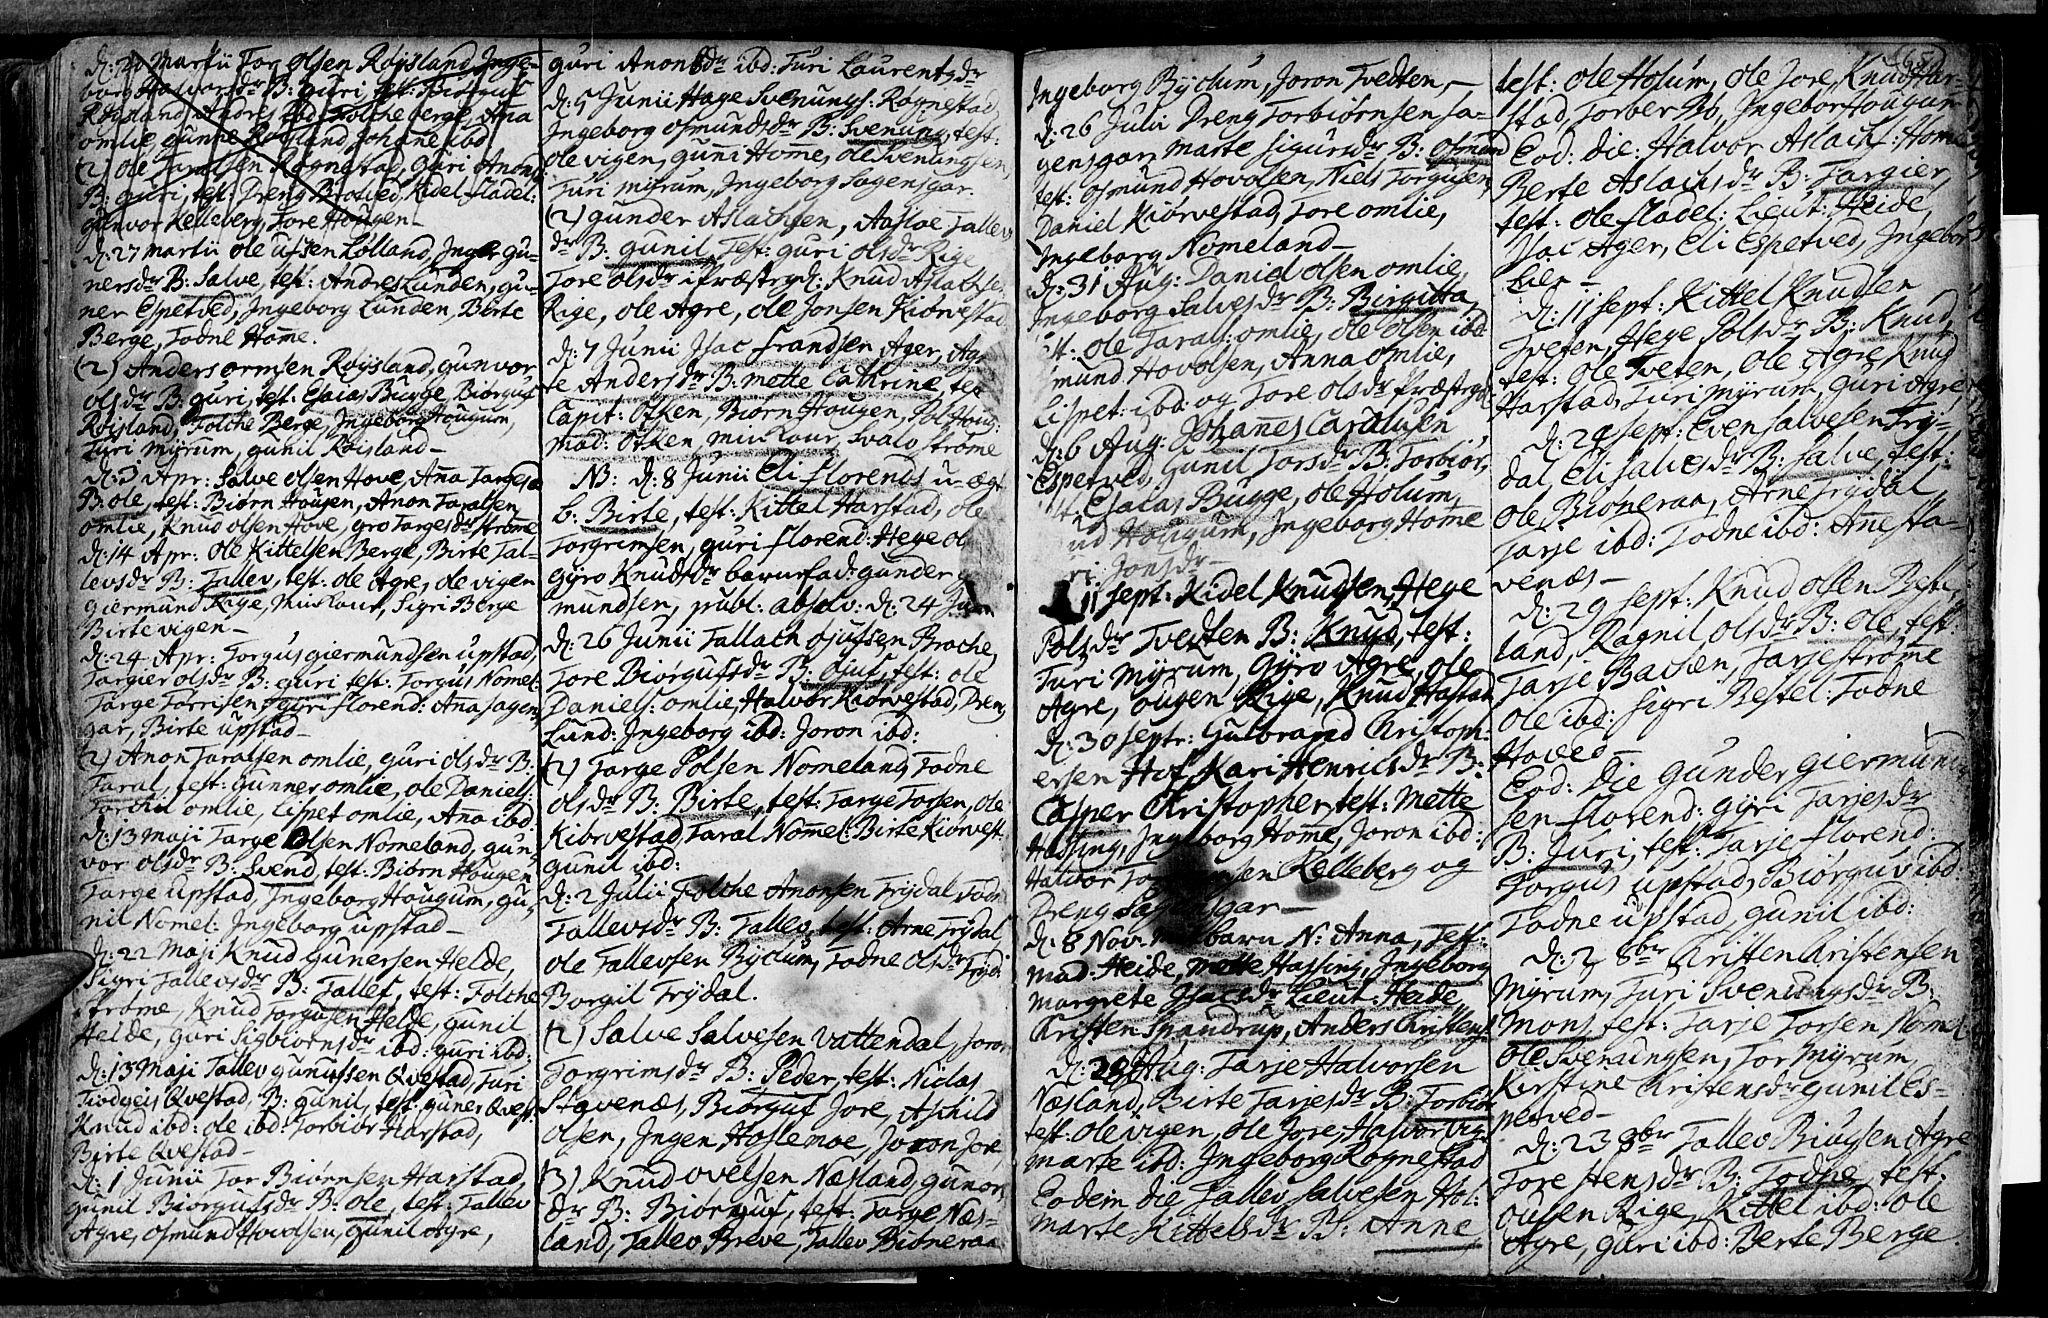 d: 20 Martii Tor Olsen Røisland, Inge-
borg Halvorsdr B: guri, test: Biørguf
Røisland, Anders ibd: Folche berge, Ana
omlie, gunne Røisland, Johane ibd:
(2) Ole Taralsen Rognestad, guri Anons
B: guri, test: Dreng Brotved, Kidel fladel:
gunvor Kelleberg, Tore Hougen
d: 27 Martii Ole Ufsen Lolland, Inger Gu-
nersdr B: Salve, test: Andres Lunden, gu-
ner Espetved, Ingeborg Lunden, Berte
Berge, Todne Home.
(2) Anders ormsen Røisland, gunvor
olsdr B: guri, test: Esaias Bugge, Biørguf
Røisland, Folche Berge, Ingeborg Hougum,
Turi Myrum, gunil Røisland
d: 3 Apr: Salve Olsen Hove, Ana Targesd
B: ole, test: Biørn Hougen, Anon Taralsen
omlie, Knud olsen Hove, gro Targesdr strøme
d: 14 Apr: Ole Kittelsen Berge, Birte Tal-
levsdr B: Tallev, test: ole Agre, ole vigen
giermund Rige, Sigri Berge
Birte vigen
d: 24 Apr: Torgus giermundsen upstad,
Targier olsdr B: guri test: Torgus Nomel:
Targe Torrisen, guri florend: Ana sagen
gar, Birte upstad
(2) Anon Taralsen omlie, guri olsdr B:
Taral, test: gunner omlie, ole Daniels:
omlie, Lispet omlie, Ana ibd:
d: 13 Maji Targe Olsen Nomeland, gun-
vor olsdr B: Svend, test: Biørn Hougen
Targe upstad, Ingeborg Hougum, gu-
nil Nomel: Ingeborg upstad
d: 22 Maji Knud gunersen Helde,
Sigri Tallevsdr B: Tallef, test: Folche
strøme, Knud Torgusen Helde, gunil
Helde, guri Sigbiørnsdr ibd: guri ibd:
d: 13 Maji Tallev gunufsen Qvestad, Turi
Tiodgeis Qvestad, B: gunil, test: guner Qvest:
Knud ibd: ole ibd: Torbiør Harstad,
Birte Qvestad
d: 1 Junii Tor Biørnsen Harstad,
Gunil Biørgufsdr B: Ole, test: Tallev
Agre, Osmund Hovolsen, gunil Agre,
guri Anonsdr ibd: Turi Laurentsdr
d: 5 Junii Hage Svenungs: Røgnestad
Ingeborg Osmundsdr B: Svenung, test:
ole vigen, guni Home, ole Svenungsen,
Turi mirum, Ingeborg Sagensgar.
(2) gunder Aslachsen, Aasloe Tallev
dr B: gunil, Test: guri olsdr Rige
Tore olsdr i Præstegd: Knud Aslachse,
Rige, ole Agre, ole Jonsen Kiørvestad
d: 7 Junii Isac frandsen Ager, Agn
te Andersdr B: Mette Cathrine, test
Capit: Ofken, Biørn Hougen,
Mad: Ofken, Svalo Strøme
NB: d: 8 Junii Eli florends u-ægt
b: Birte, test: Kittel Harstad, ole
Torgrimsen, guri florend: Hege ol
Gyro Knudsdr barnefad: gunder g
mundsen, publ: absolv: d: 24 Juni
d: 26 Junii Tallach Ojufsen Broche,
Tore Biørgufsdr B: Ojuf, test: ole
Daniels: omlie, Halvor Kiørvestad, Dren
Lund: Ingeborg ibd: Joron ibd:
(2) Targe Polsen Nomeland, Todne
olsdr B: Birte, test: Targe Torsen, ole
Kiørvestad, Taral Nomel: Birte Kiørvest:
gunil ibd:
d: 2 Julii Folche Anonsen Trydal, Todn
Tallevsdr B: Tallev, test: Arne Trydal,
ole Tallevsen Byclum, Todne olsdr Tryd:
Borgil Trydal.
(2) Salve Salvesen Vattendal, Joron
Torgrimsdr B: Peder, test: Niclas
Stavenæs, Biørguf Jore, Aschild
olsen, Ingen Haslemoe, Joron Jore,
(3) Knud ovelsen Næsland, gunor
dr B: Biørguf, test: Targe Næs-
land, Tallev Breve, Tallev Biøneraa
Ingeborg Byclum, Joron Tvedten,
d: 26 Julii Dreng Torbiørnsen Sa-
gensgar, Marte Sigursdr B: Osmun
test: Osmund Hovolsen, Niels Torgusen,
Daniel Kiørvestad, Tore omlie,
Ingeborg Nomeland
d: 31 Aug: Daniel Olsen omlie,
Ingeborg Salvesdr B: Birgitta,
t: Ole Taral: omlie, Ole Olsen ibd
mund Hovolsen, Anna omlie,
Lispet: ibd: og Tore olsdr Præstegd:
d: 6 Aug: Johannes Carolusen
Espetved, Gunil Torsdr B: Torbiør,
t: Esaias Bugge, Ole Holum,
ud Hougum, Ingeborg Home
ri: Jonsdr
11 Sept: Kidel Knudsen, Hege
Polsdr Tvedten B: Knud, test:
Turi Myrum, Gyro Agre, ole
Agre, ougen Rige, Knud Hastad
d: 30 Septr: Gulbrand Christoph-
ersen Hof, Kari Henricsdr B:
Casper Christopher, test: Mette
Hassing, Ingeborg Home, Joron ibd:
Halvor Kelleberg og
Dreng
d: 8 Nov: barn N: Anna, Test:
Mad: Heide, Mette Hassing, Ingeborg
Margrete Isacsdr Lieut: Heide,
Kristen Spandrup, Anders Christens:
d: 28 Aug: Tarje Halvorsen
Næsland, Birte Tarjesdr B: Torbiør
test: ole vigen, ole Jore, Halvor vig:
Marte ibd: Ingeborg Rognestad
Eodem die Tallev Salvesen Hol:
Marte Kittelsdr B: Anne
test: Ole Holum, Ole Jore, Knud Har-
stad, Torber ibd, Ingebor Hougum
Eod: die: Halvor Aslachs: Home
Berte Aslachsdr B: Targier,
test: ole fladel: Lieut: Heide,
Isac Ager, Eli Espetved, Ingebor
Lien
d: 11 Sept: Kittel Knudsen
Tveten, Hege Polsdr B: Knud,
test: Ole Tveten, Ole Agre, Knud
Harstad, Turi Myrum, Guri Agre,
d: 29 Sept: Even Salvesen Try-
dal, Eli Salvesdr B: Salve, test:
Ole Bioneraa, Arne Trydal,
Tarje ibd: Todne ibd: Anne Sta-
venæs
d: 29 Sept: Knud Olsen Beste-
land, Ragnil Olsdr B: Ole, test:
Tarje Baasen, Tarje Strøme
Ole ibd: Sigri Bestel: Todne
Hoved
Eod: Die Gunder giermund
sen florend: gyri Tarjesdr
B: Juri, test: Tarje florend:
Torgus upstad, Biørguv ibd:
Todne upstad, gunil ibd:
d: 2 8br Kristen Kristensen
Myrum, Turi Svenungsdr B:
Mons, test: Tarje Torsen Nomel
Ole Svenungsen, Tor Myrum,
Kirstine Kristensdr gunil Es-
petved
d: 23 8br Tallev Biugsen Agre
Tore Stensdr B: Todne, test:
ousen Rige, Kittel ibd: ole
Agre, guri ibd: Berte Berge.